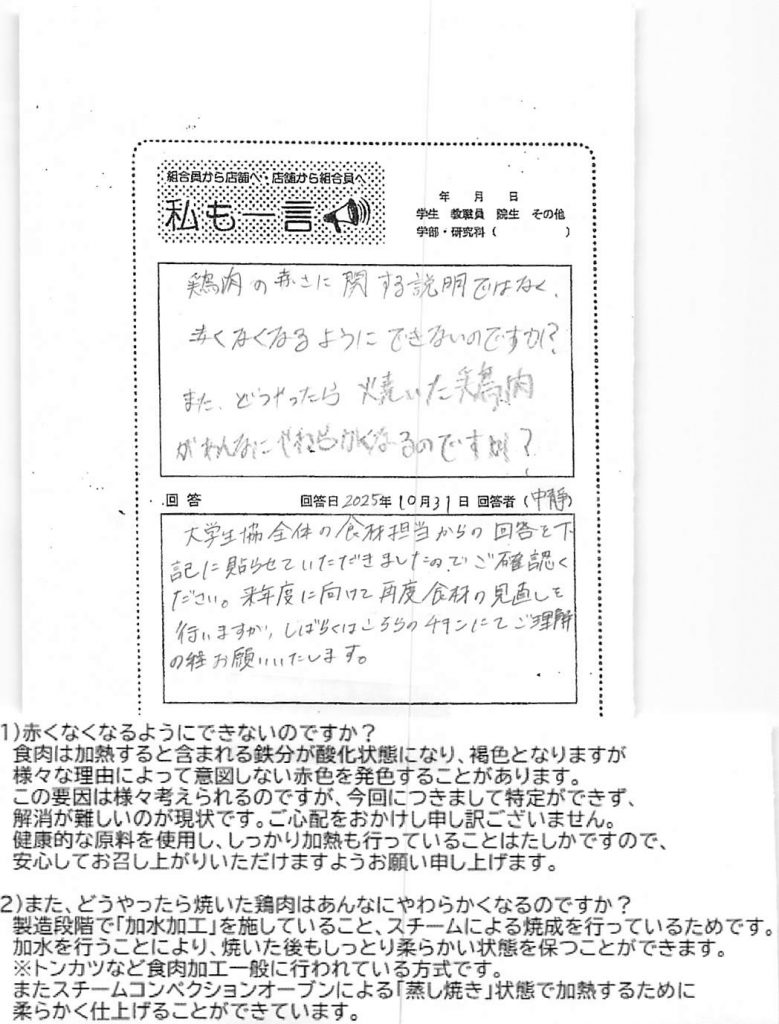 組合員から店舗へ・店舗から組合員へ
私も一言
年 月 日
学生 教職員 院生 その他
学部・研究科( )
鶏肉の赤さに関する説明ではなく、
赤くなくなるようにできないのですか?
また、どうやったら焼いた鶏肉
があんなにやわらかくなるのですか?
回答 回答日2025年10月31日 回答者(中静)
大学生協全体の食材担当からの回答を下
記に貼らせていただきましたのでご確認く
ださい。来年度に向けて再度食材の見直しを
行いますが、しばらくはこちらのチキンにてご理解
の程お願いいたします。
1)赤くなくなるようにできないのですか?
食肉は加熱すると含まれる鉄分が酸化状態になり、褐色となりますが
様々な理由によって意図しない赤色を発色することがあります。
この要因は様々考えられるのですが、今回につきまして特定ができず、
解消が難しいのが現状です。ご心配をおかけし申し訳ございません。
健康的な原料を使用し、しっかり加熱も行っていることはたしかですので、
安心してお召し上がりいただけますようお願い申し上げます。
2)また、どうやったら焼いた鶏肉はあんなにやわらかくなるのですか?
製造段階で「加水加工」を施していること、スチームによる焼成を行っているためです。
加水を行うことにより、焼いた後もしっとり柔らかい状態を保つことができます。
※トンカツなど食肉加工一般に行われている方式です。
またスチームコンベクションオーブンによる「蒸し焼き」状態で加熱するために
柔らかく仕上げることができています。